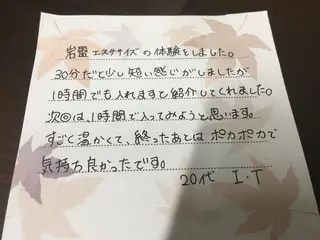 岩盤エクササイズの体験をしました。
30分だと少し短い感じがしましたが
1時間でも入れますと紹介してくれました。
次回は、1時間で入ってみようと思います。
すごく温かくて、終ったあとはポカポカで
気持ち良かったです。
20代 I・T